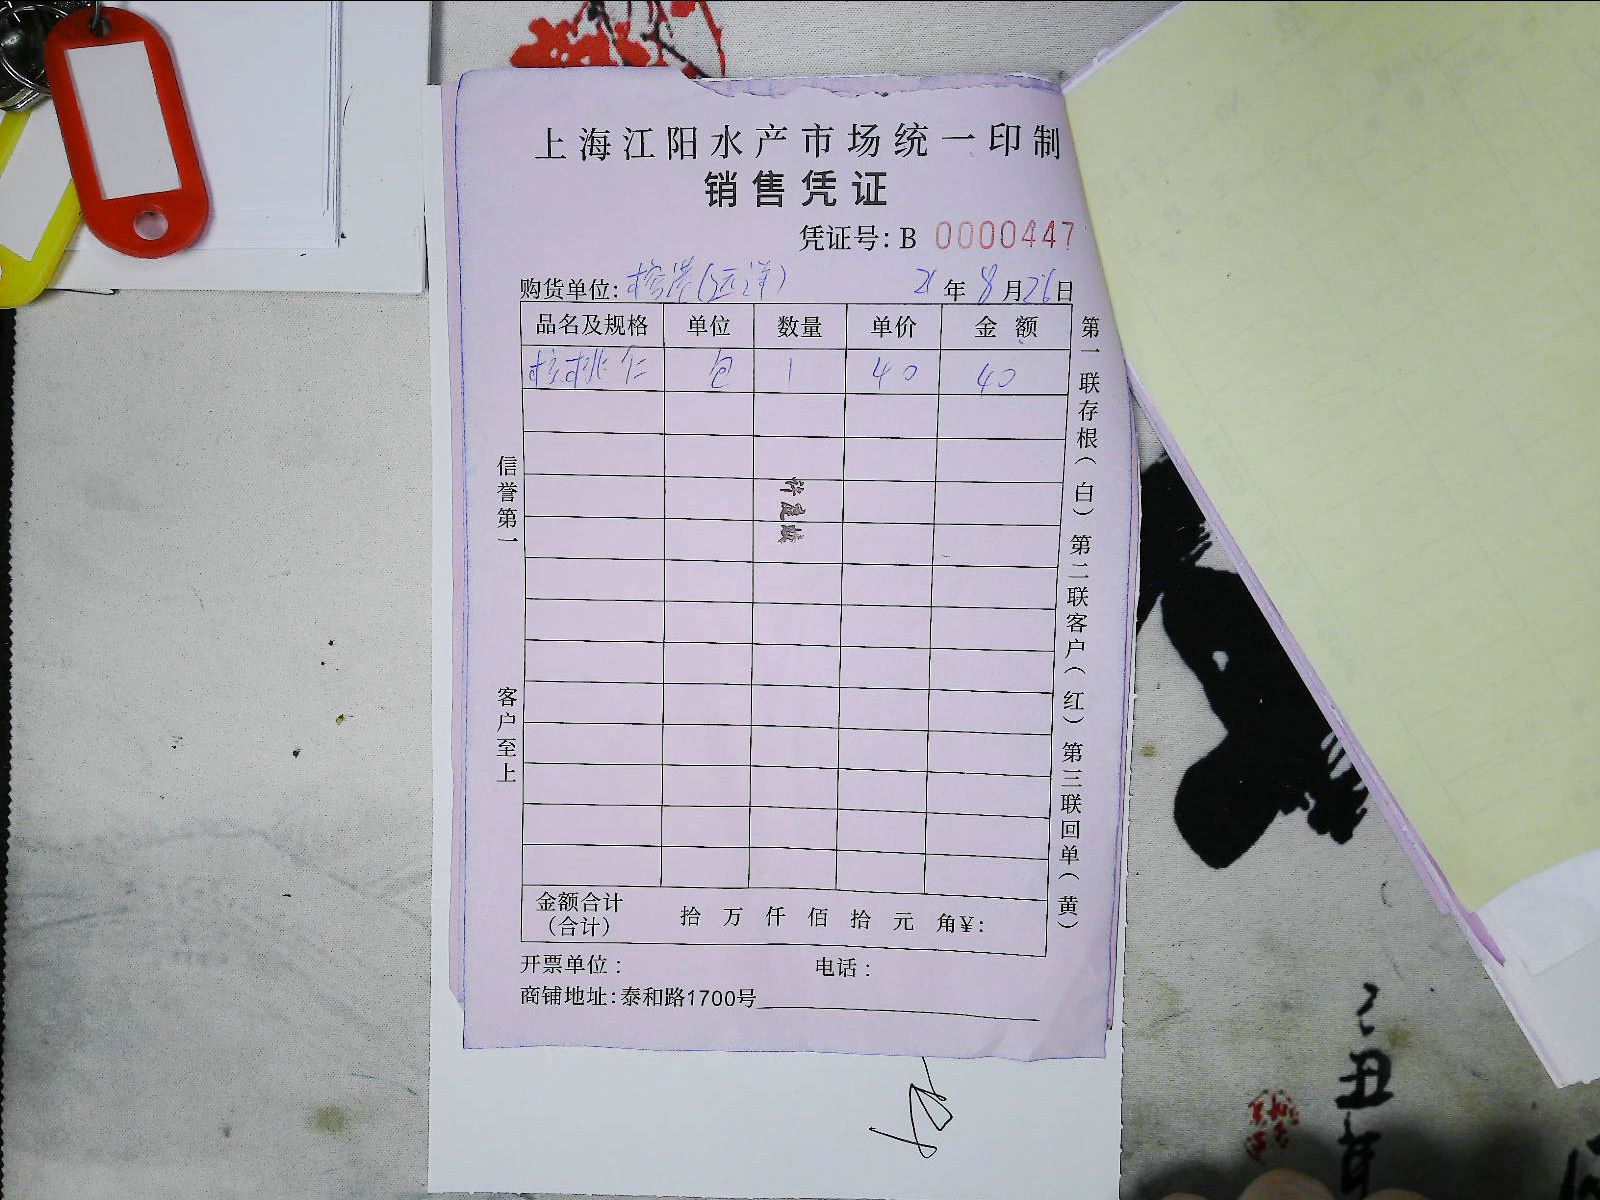 上海江阳水产市场统一印制
销售凭证
凭证号: B 0000447
购货单位: (远洋) 21 年 8 月 26 日
品名及规格 单位 数量 单价 金额
核桃仁 包 1 40 40
信誉第一
客户至上
第一联存根(白) 第二联客户(红) 第三联回单(黄)
金额合计
(合计) 拾 万 仟 佰 拾 元 角 ¥:
开票单位: 电话:
商铺地址: 泰和路1700号
己丑年